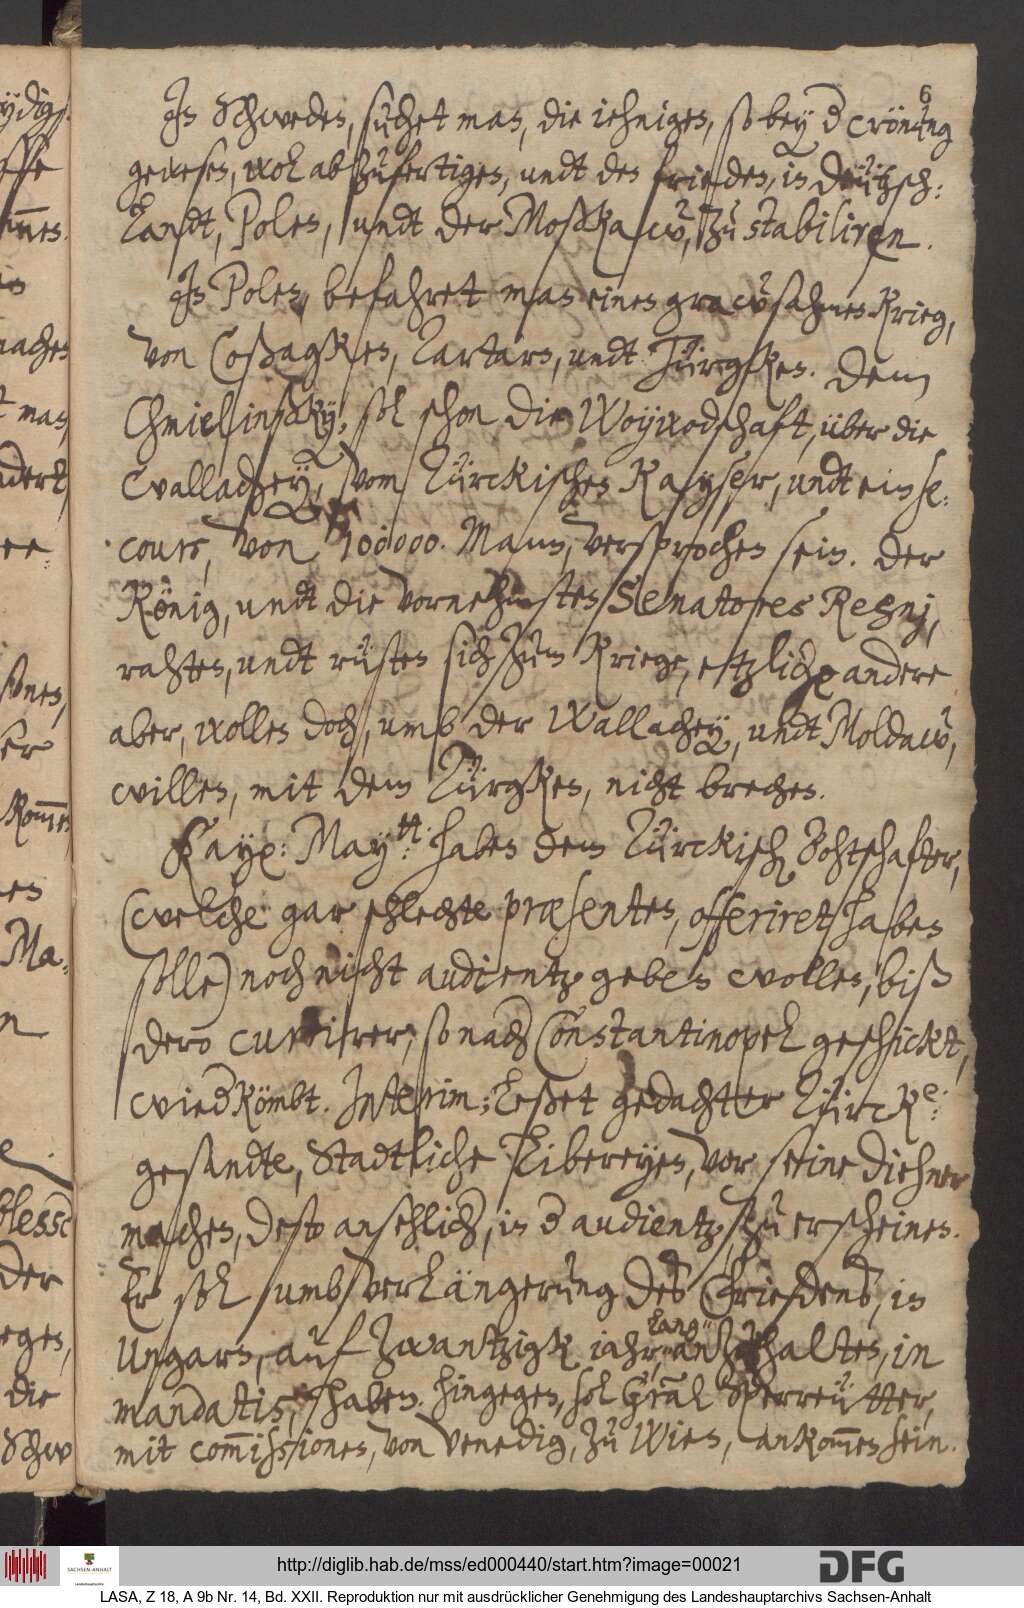 6
In Schweden, suchet man, die iehnigen, so bey d crönung
gewesen, wol abzufertigen, undt den frieden, in Deützsch:
landt, Polen, undt der Moßkaw, zu stabiliren.
In Polen, befahret man eines grawsahmen Krieg,
von Coßagken, Tartarn, undt Türgken. Dem
Chmielinsky, sol schon die Woywodschaft, über die
Wallachey, vom Türckischen Kayser, undt ein se-
cours, von 100000. Mann, versprochen sein. Der
König, undt die Vornehmsten Senatores Regnj,
rahten, undt rüsten sich zum Kriege, etzliche andere
aber, wollen doch, umb der Wallachey, undt Moldaw,
willen, mit dem Türgken, nicht brechen.
Kaye: Maytt: haben dem Türckisch Bohtschafter,
(welche gar schlechte præsenten, offeriret haben
solle) noch nicht audientz geben wollen, biß
dero currirer, so nach Constantinopel geschickt,
wiedkömbt. Interim; leßet gedachter Türcke:
gesandte, Stadtliche Libereyen, vor seine diehner
machen, desto ansehlich, in d audientz, zu erscheinen.
Er sol umb verlängerung des Friedens, in
Ungarn, auf zwantzigk iahr, lang
anzuhalten, in
mandatis, haben. hingegen, sol Gral Sperreütter,
mit commissionen, von Venedig, zu Wien, ankommen sein.
http://diglib.hab.de/mss/ed000440/start.htm?image=00021
SACHSEN-ANHALT
Landeshauptarchiv
DFG
LASA, Z 18, A 9b Nr. 14, Bd. XXII. Reproduktion nur mit ausdrücklicher Genehmigung des Landeshauptarchivs Sachsen-Anhalt